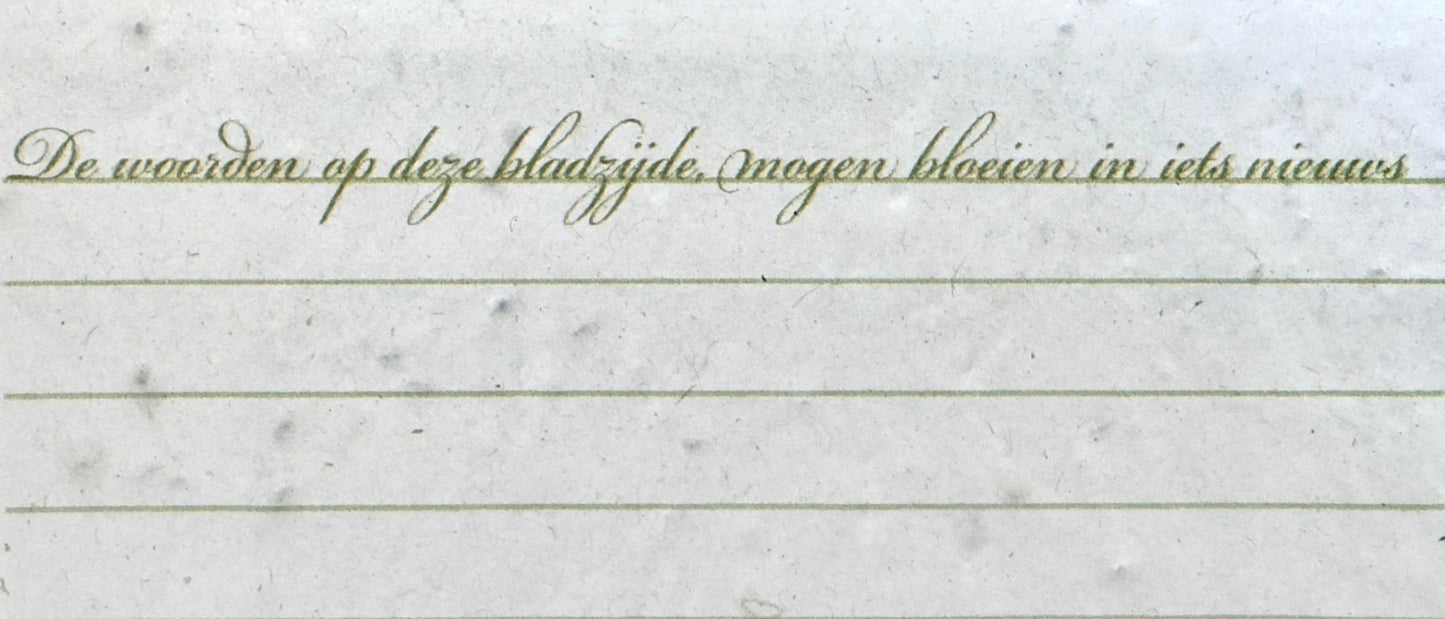 De woorden op deze bladzijde, mogen bloeien in iets nieuws